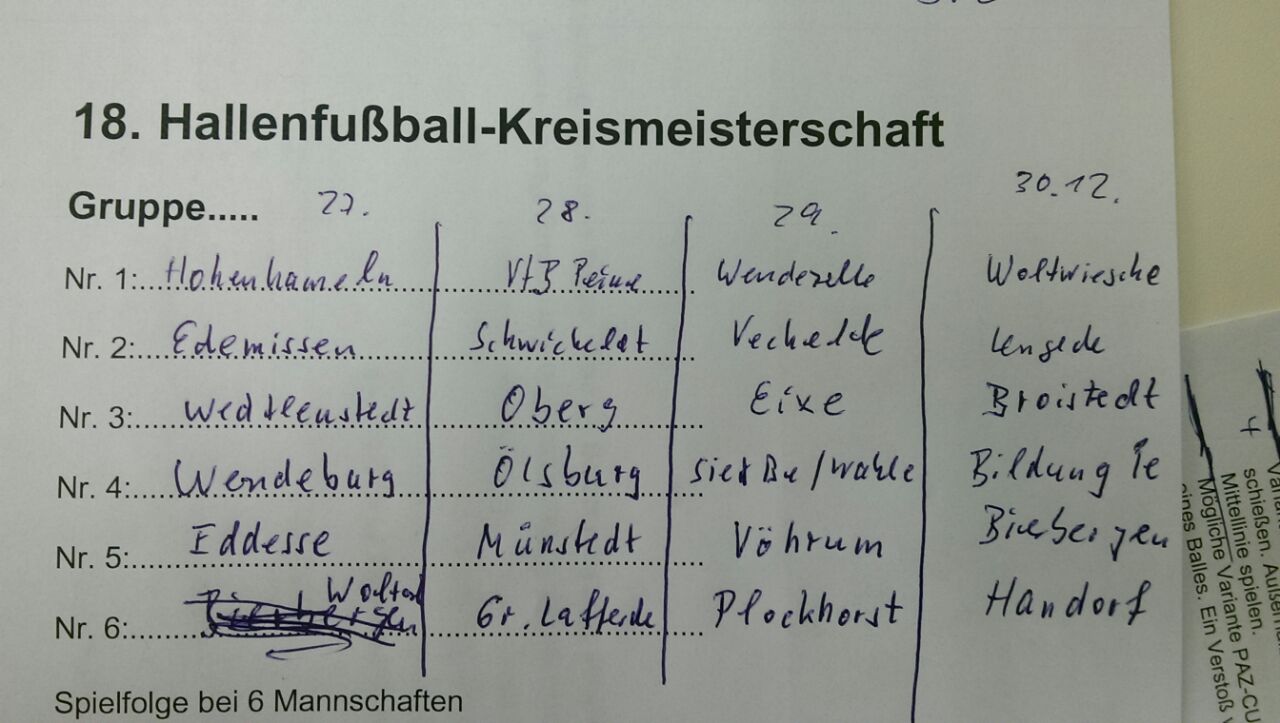 18. Hallenfußball-Kreismeisterschaft
Gruppe..... 27. 28. 29. 30.12.
Nr. 1: Hohenhameln VfB Peine Wendezelle Woltwiesche
Nr. 2: Edemissen Schwicheldt Vechelde Lengede
Nr. 3: Wedtlenstedt Oberg Eixe Broistedt
Nr. 4: Wendeburg Ölsburg Sierße/Wahle Bildung Pe
Nr. 5: Eddesse Münstedt Vöhrum Bierbergen
Nr. 6: Bierbergen Woltorf Gr. Lafferde Plockhorst Handorf
Spielfolge bei 6 Mannschaften
schießen. Außen
Mittellinie spielen.
Mögliche Variante PAZ-CU
eines Balles. Ein Verstoß